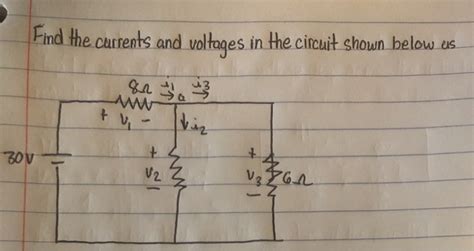 Find the currents and voltages in the circuit shown below us
8Ω i₁ a i₃
+ V₁ - ↓i₂
30V + V₂ - + V₃ - 6Ω